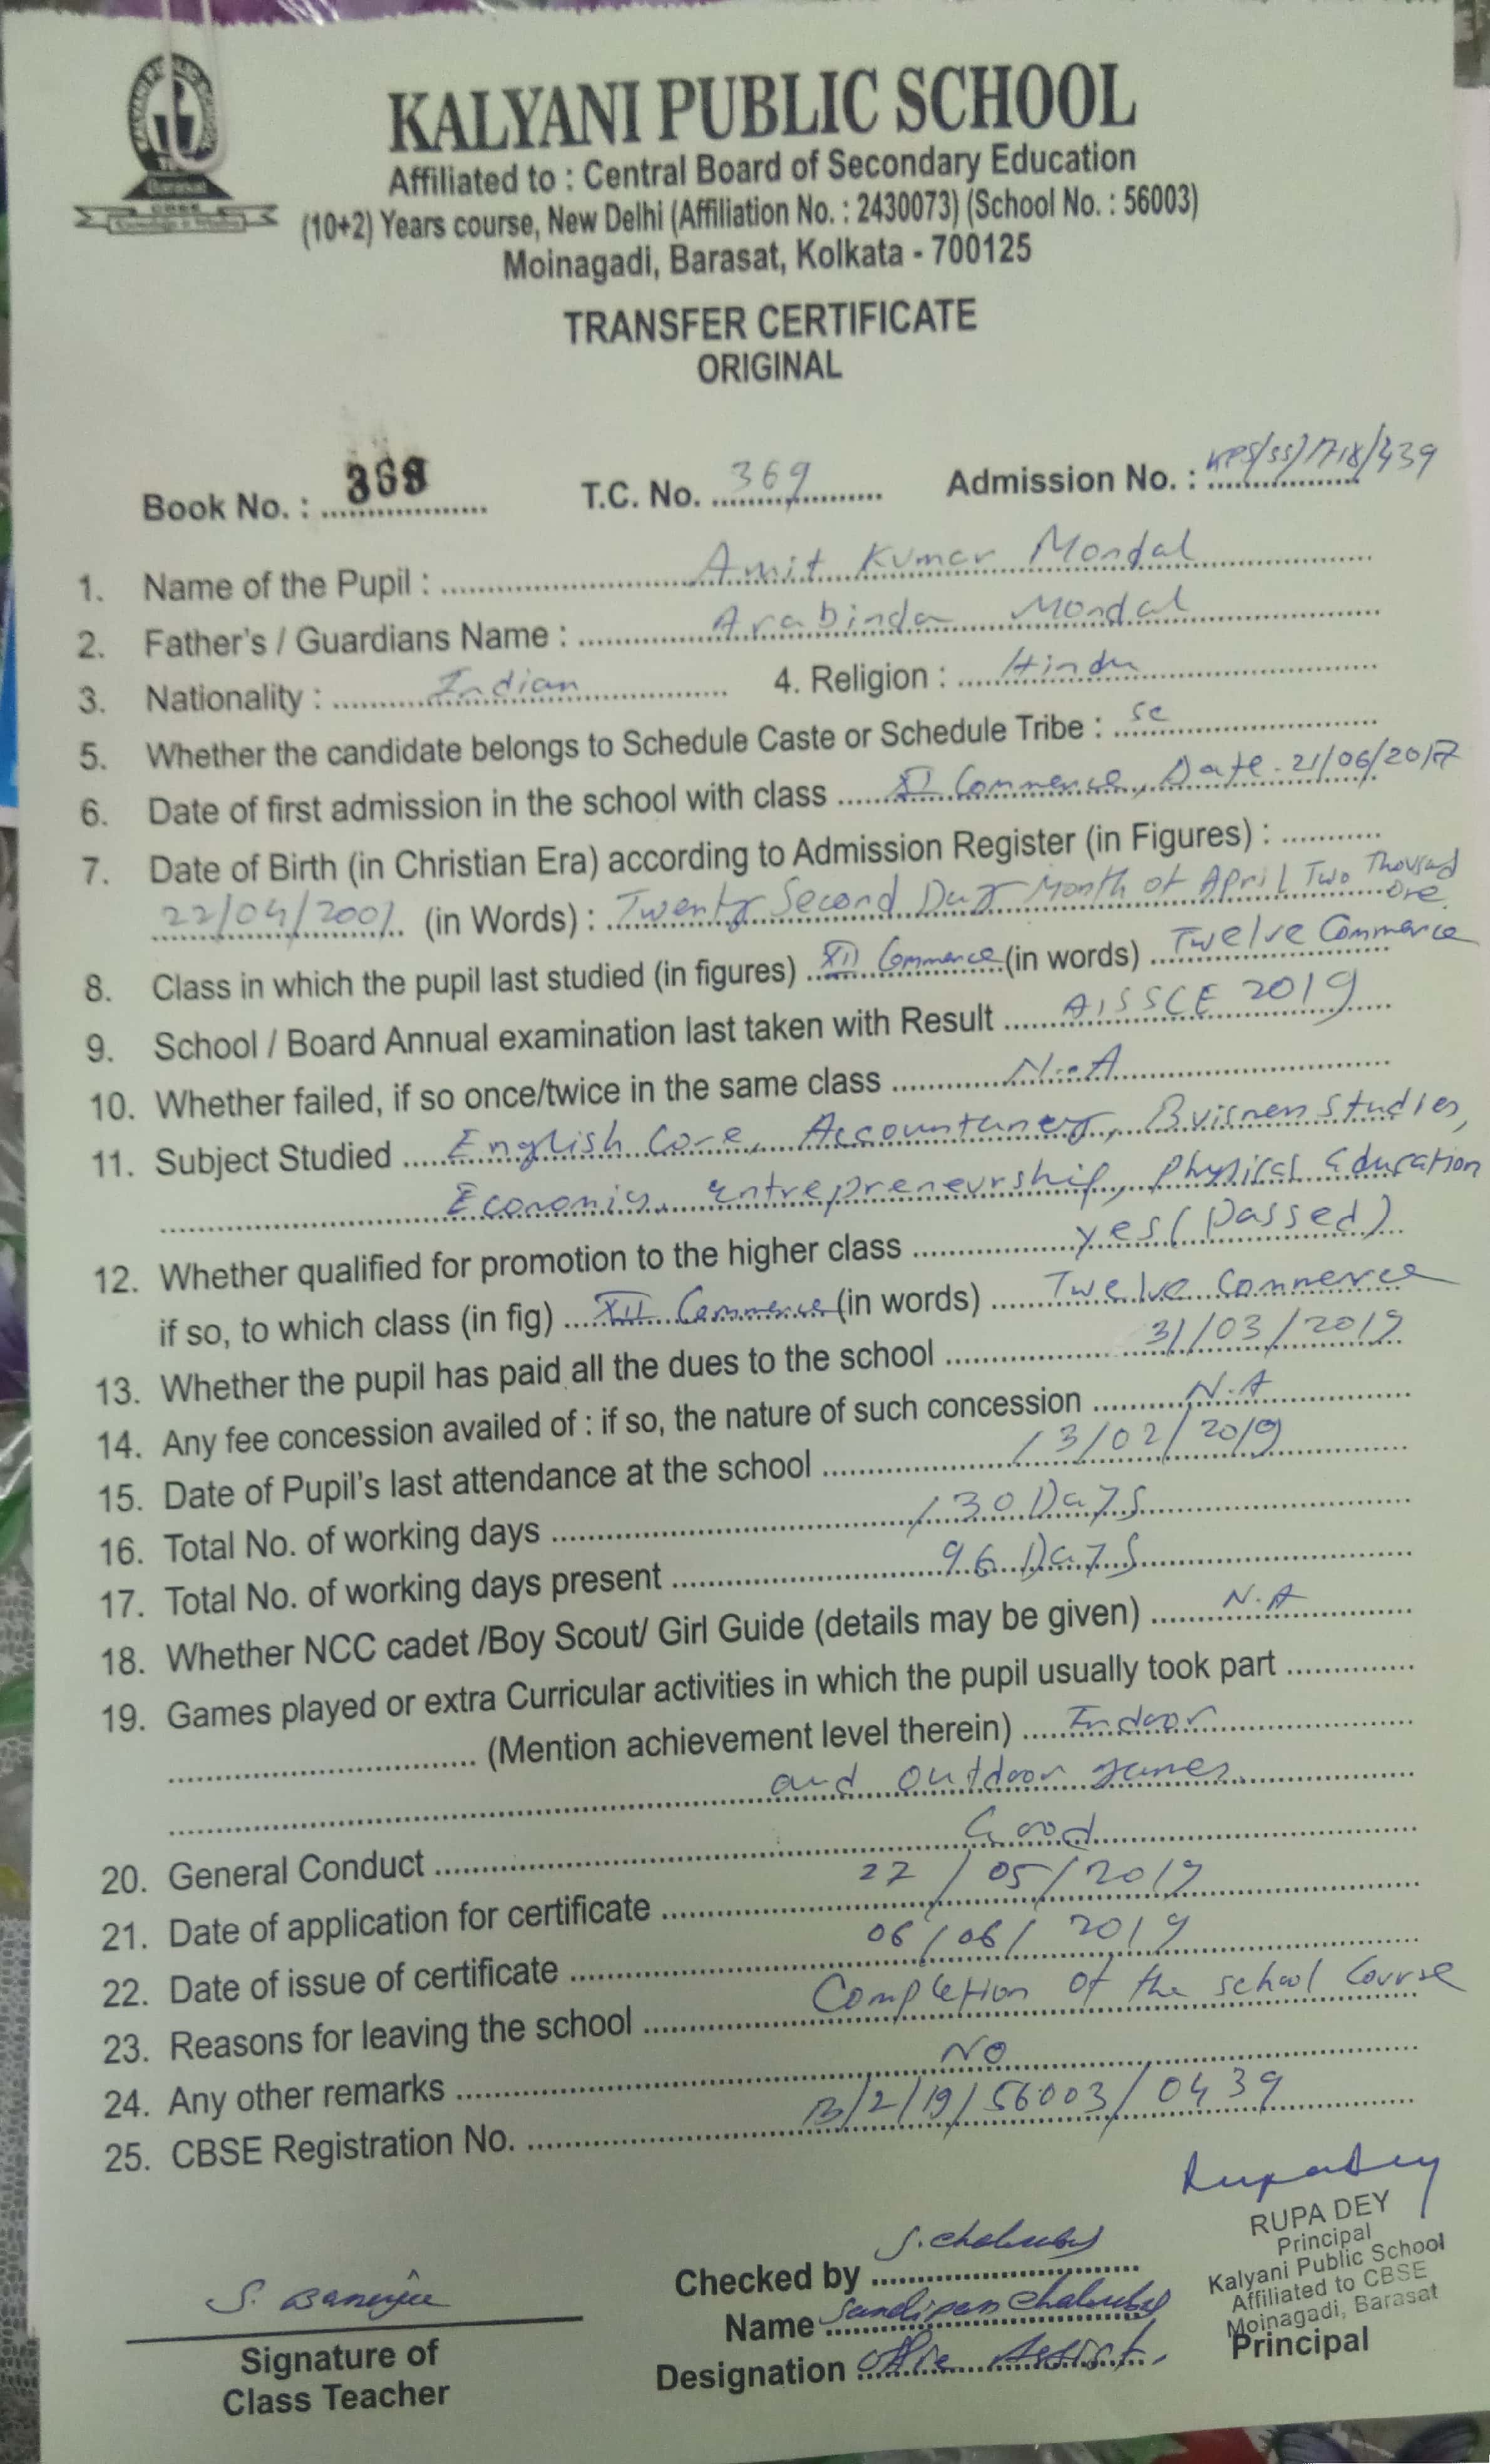 KALYANI PUBLIC SCHOOL
Affiliated to : Central Board of Secondary Education
(10+2) Years course, New Delhi (Affiliation No. : 2430073) (School No. : 56003)
Moinagadi, Barasat, Kolkata - 700125
TRANSFER CERTIFICATE
ORIGINAL
Book No. : 369 T.C. No. 369 Admission No. : KPS/SS/1718/439
1. Name of the Pupil : Amit Kumar Mondal
2. Father's / Guardians Name : Arabinda Mondal
3. Nationality : Indian 4. Religion : Hindu
5. Whether the candidate belongs to Schedule Caste or Schedule Tribe : SC
6. Date of first admission in the school with class XI Commerce, Date - 21/06/2017
7. Date of Birth (in Christian Era) according to Admission Register (in Figures) :
22/04/2001 (in Words) : Twenty Second Day Month of April Two Thousand One
8. Class in which the pupil last studied (in figures) XII Commerce (in words) Twelve Commerce
9. School / Board Annual examination last taken with Result AISSCE 2019
10. Whether failed, if so once/twice in the same class N.A
11. Subject Studied English Core, Accountancy, Buisness Studies,
Economics, Entrepreneurship, Physical Education
12. Whether qualified for promotion to the higher class Yes (Passed)
if so, to which class (in fig) XII Commerce (in words) Twelve Commerce
13. Whether the pupil has paid all the dues to the school 31/03/2019
14. Any fee concession availed of : if so, the nature of such concession N.A
15. Date of Pupil's last attendance at the school 13/02/2019
16. Total No. of working days 130 Days
17. Total No. of working days present 96 Days
18. Whether NCC cadet /Boy Scout/ Girl Guide (details may be given) N.A
19. Games played or extra Curricular activities in which the pupil usually took part
(Mention achievement level therein) Indoor
and outdoor games
20. General Conduct Good
21. Date of application for certificate 22/05/2019
22. Date of issue of certificate 06/06/2019
23. Reasons for leaving the school Completion of the school Course
24. Any other remarks NO
25. CBSE Registration No. B/2/19/56003/0439
Rupa Dey
RUPA DEY
Principal
Kalyani Public School
Affiliated to CBSE
Moinagadi, Barasat
Principal
Checked by
Name Sandipan
Designation Office Assist.
S. Banerjee
Signature of
Class Teacher